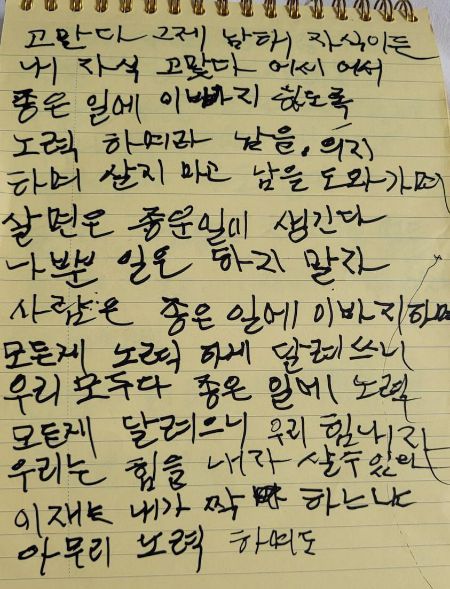 고맙다 그제 남해 자식이든
내 자식 고맞다 어서 어서
좋은 일에 이바지 하도록
노력 하여라 남을 의지
하며 살지 마고 남을 도와가며
살면은 좋운일이 생긴다
나뿐 일은 하지 말자
사람은 좋은 일에 이바지하며
모든게 노력 하게 달려쓰니
우리 모두다 좋은 일에 노력
모든게 달려으니 우리 힘내자
우리는 힘을 내자 살수있다
이재는 내가 하는냐
아무리 노력 하여도